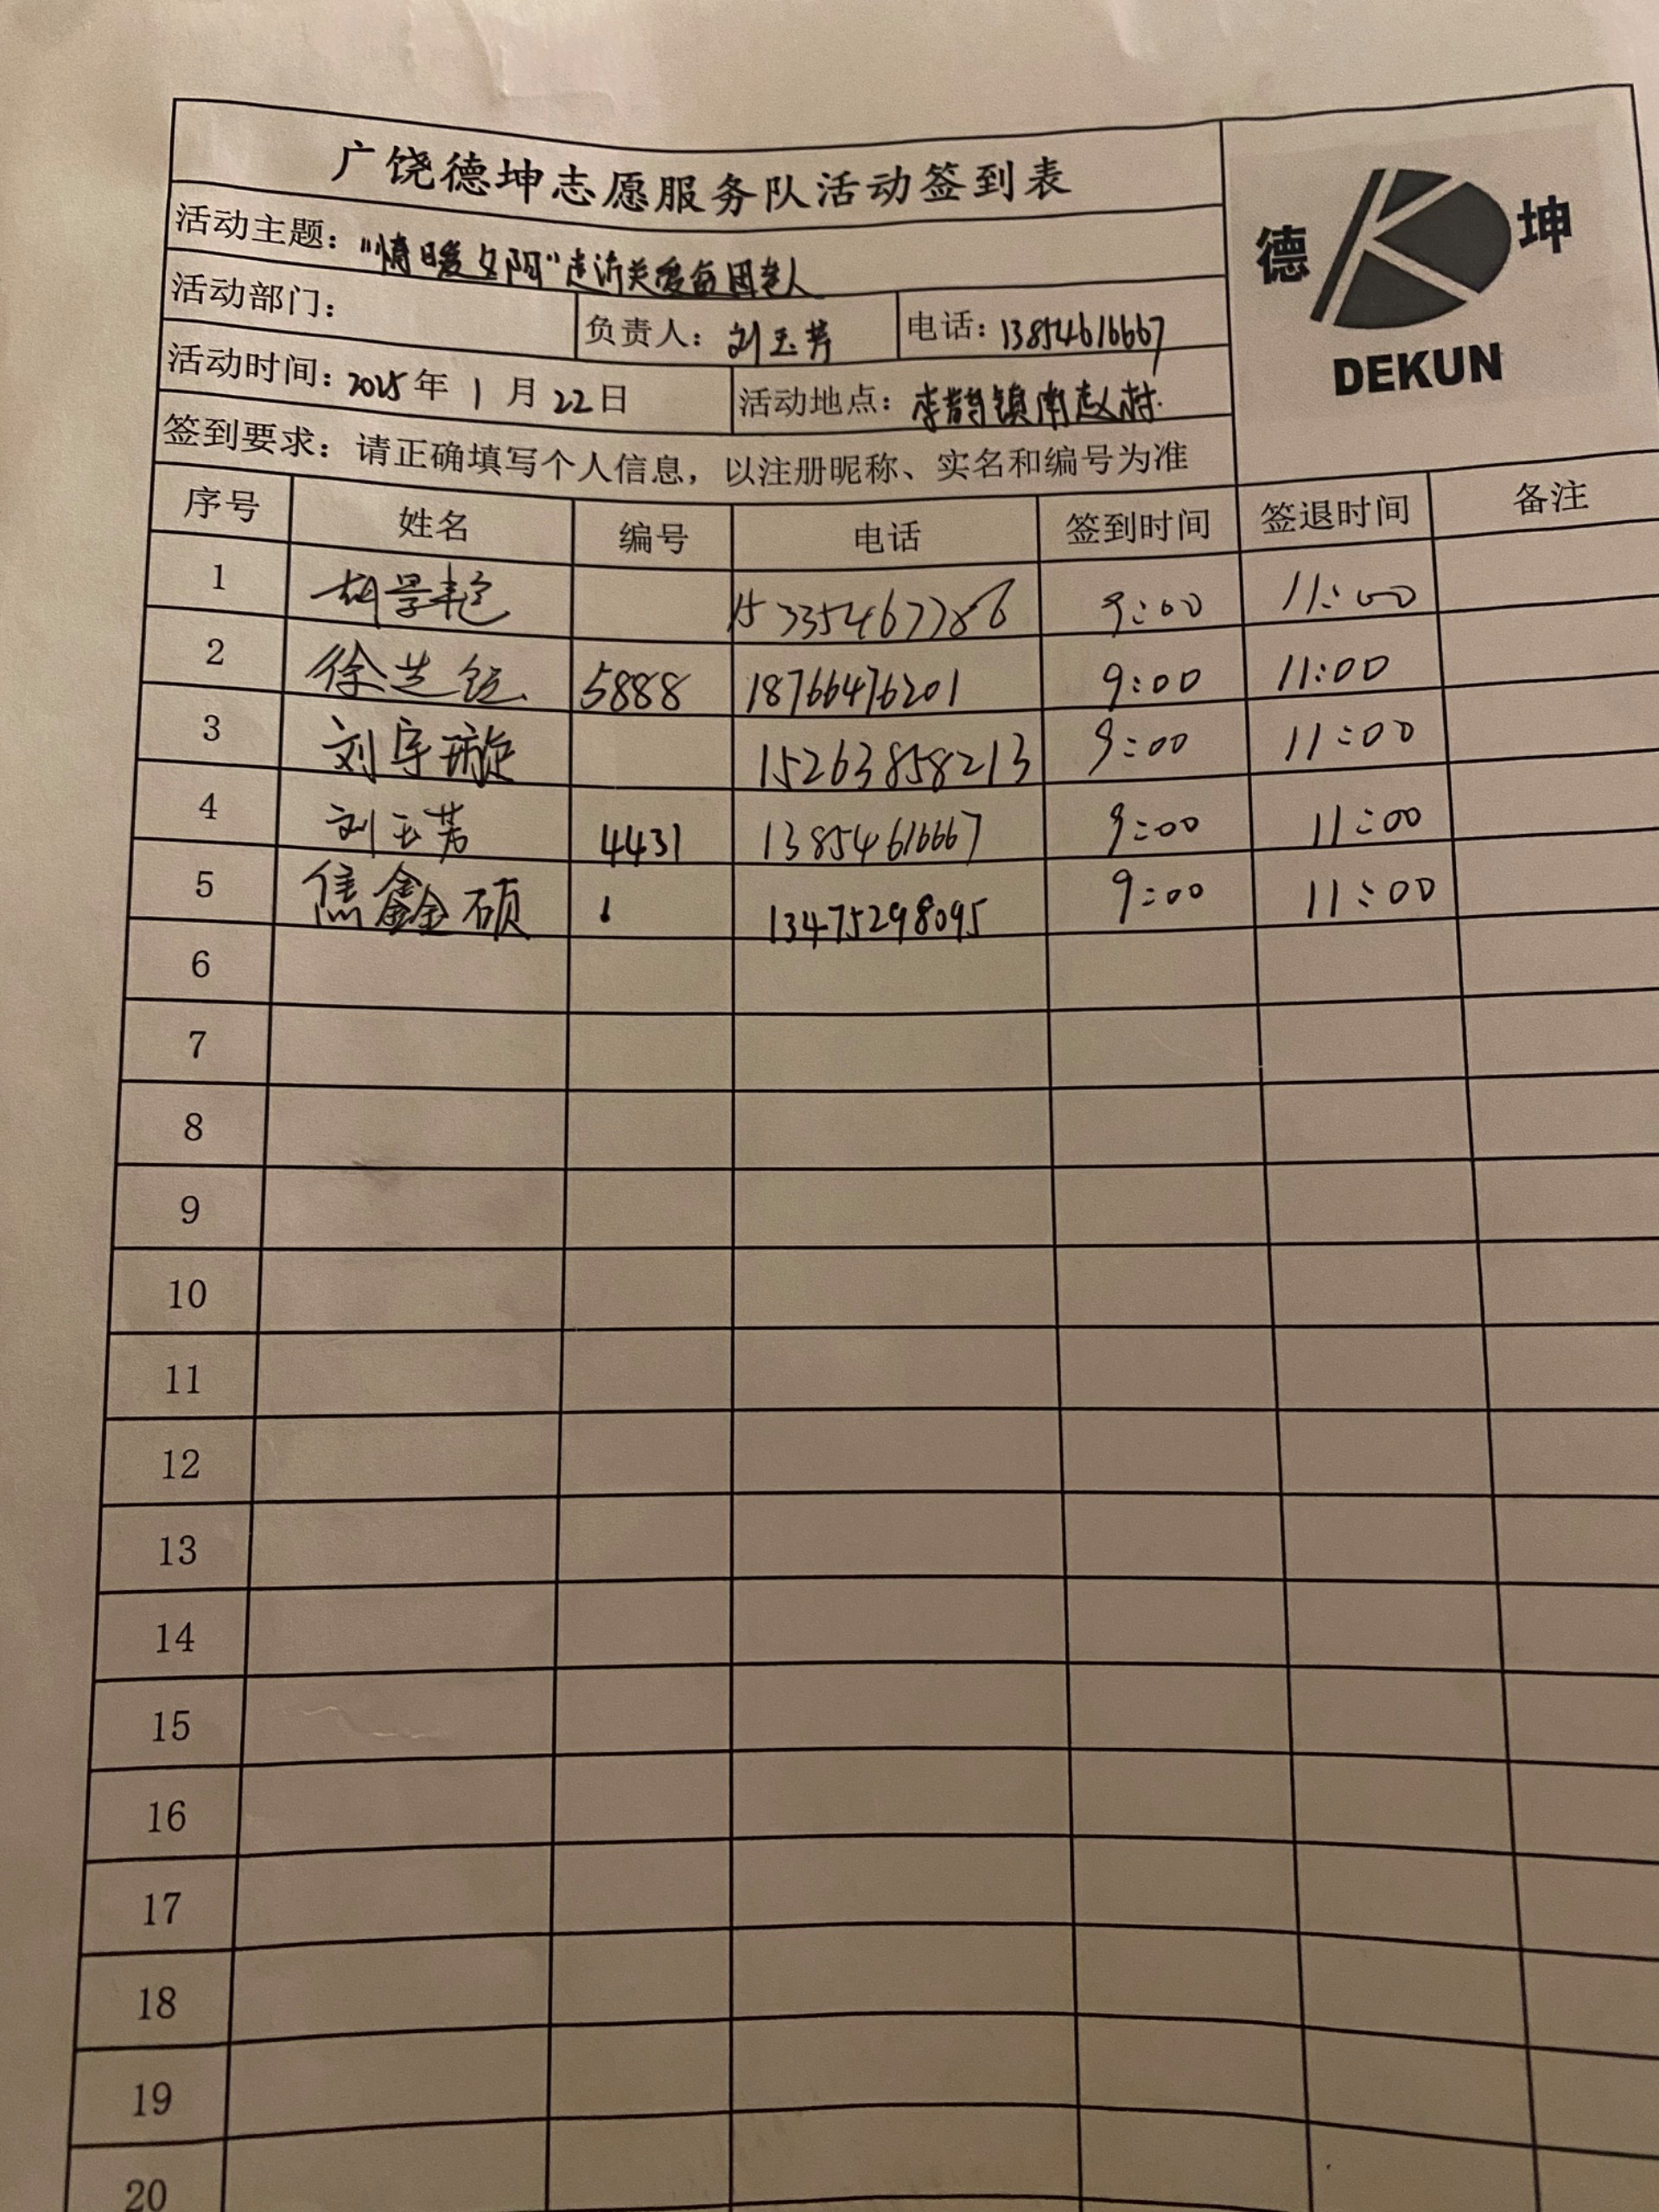 广饶德坤志愿服务队活动签到表
德 坤
DEKUN
活动主题：“情暖夕阳”走访关爱贫困老人
活动部门：
负责人：刘玉芳 电话：13854616667
活动时间：2025年1月22日 活动地点：李鹊镇南赵村.
签到要求：请正确填写个人信息，以注册昵称、实名和编号为准
序号 姓名 编号 电话 签到时间 签退时间 备注
1 胡景艳 15335467786 9:00 11:00
2 徐芝 5888 18766476201 9:00 11:00
3 刘宇璇 15263858213 9:00 11:00
4 刘玉芳 4431 13854616667 9:00 11:00
5 焦鑫硕 13475298095 9:00 11:00
6
7
8
9
10
11
12
13
14
15
16
17
18
19
20